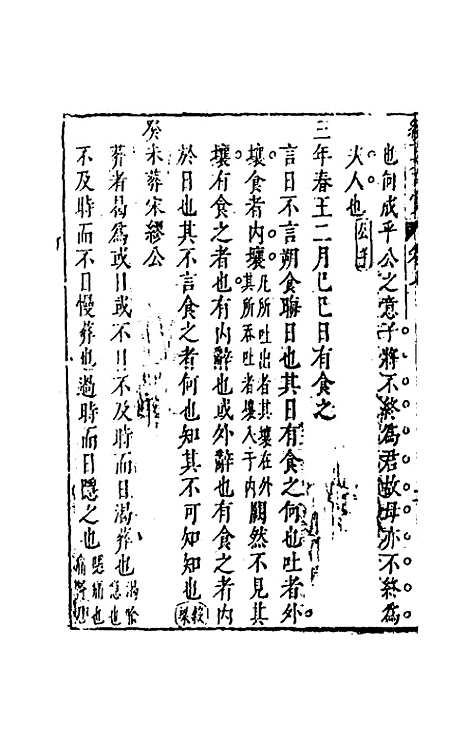 也何成乎公之意子將不終為君故母亦不終為
夫人也 公羊
三年春王二月己巳日有食之
言日不言朔食晦日也其日有食之何也吐者外
壤食者内壤凡所吐出者其壤在外其所吞咽者壤入于内闕然不見其
壤有食之者也有内辭也或外辭也有食之者内
於日也其不言食之者何也知其不可知知也 穀梁
癸未葬宋繆公
葬者曷為或日或不日不及時而日渴葬也渴喻急也
不及時而不日慢葬也過時而日隱之也隱痛也痛賢